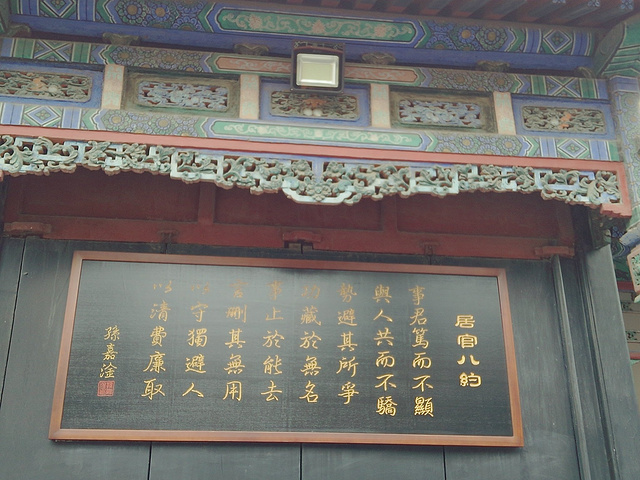 居官八約
事君篤而不顯
與人共而不驕
勢避其所爭
功藏於無名
事上於能去
言刪其無用
以守獨避人
以清費廉取
孫嘉淦